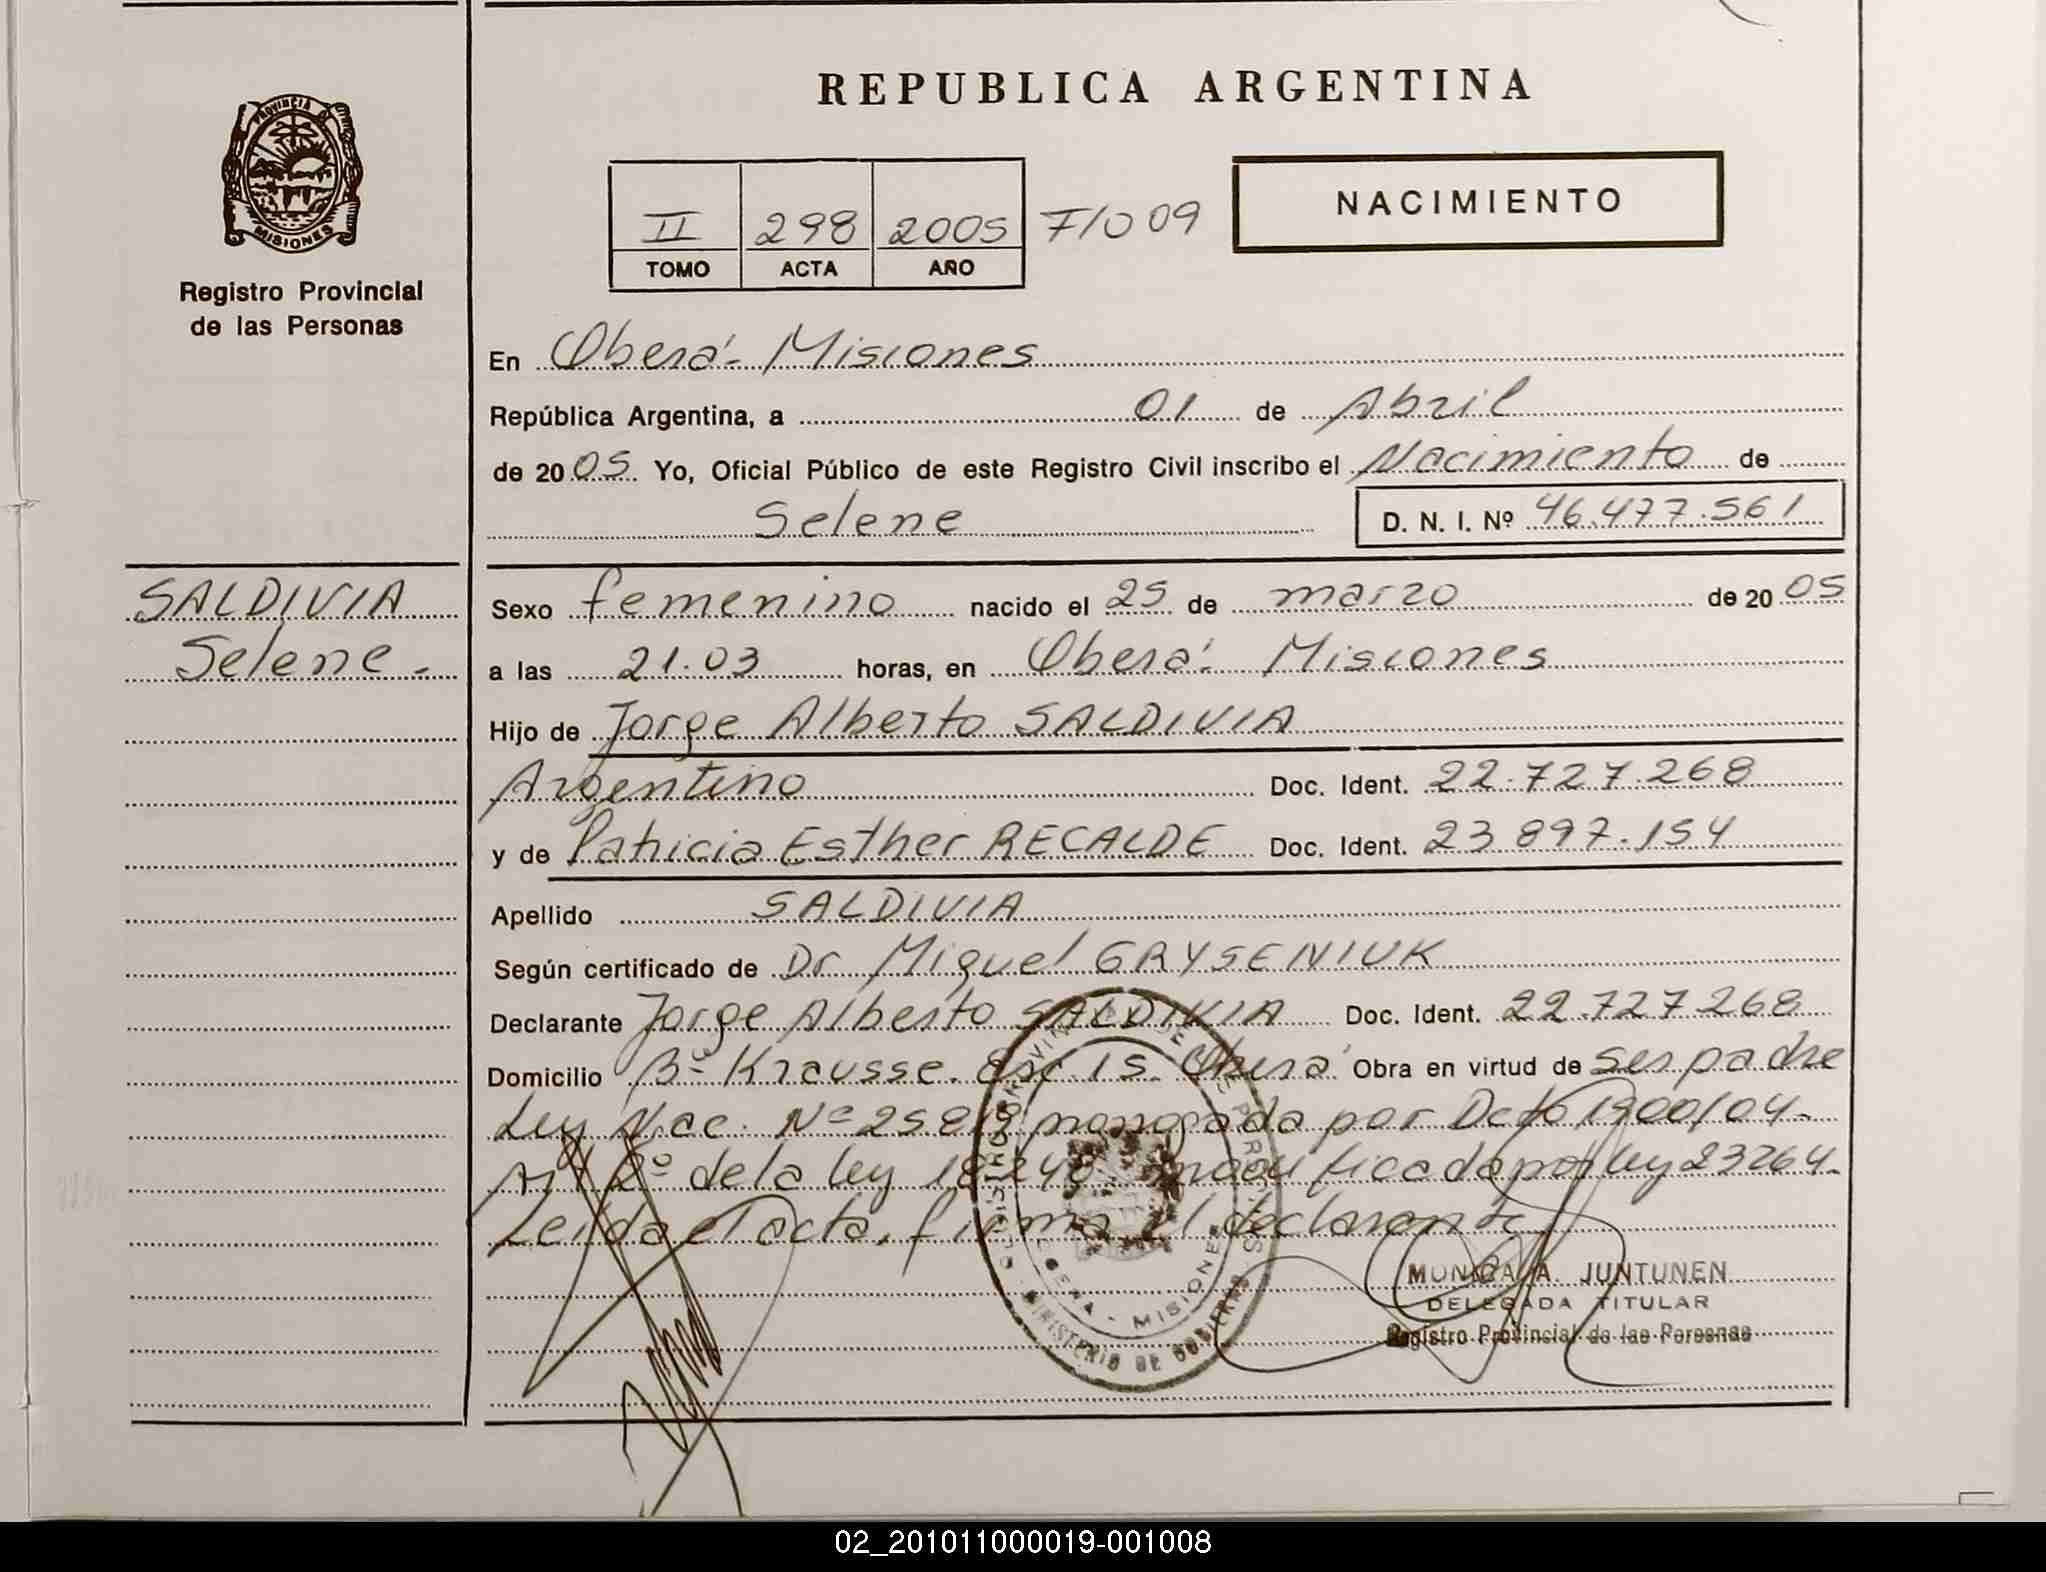 REPUBLICA ARGENTINA
PROVINCIA DE
MISIONES
Registro Provincial
de las Personas
II 298 2005 F/o 09
TOMO ACTA AÑO
NACIMIENTO
En Oberá - Misiones
República Argentina, a 01 de Abril
de 2005 Yo, Oficial Público de este Registro Civil inscribo el Nacimiento de
Selene D. N. I. Nº 46.477.561
SALDIVIA
Selene.
Sexo femenino nacido el 25 de marzo de 2005
a las 21.03 horas, en Oberá - Misiones
Hijo de Jorge Alberto SALDIVIA
Argentino Doc. Ident. 22.727.268
y de Patricia Esther RECALDE Doc. Ident. 23 897.154
Apellido SALDIVIA
Según certificado de Dr Miguel GRYSENIUK
Declarante Jorge Alberto SALDIVIA Doc. Ident. 22.727 268
Domicilio Bº Krausse. Esc 15. Oberá Obra en virtud de ser padre
Ley Nac. Nº 25819 por Dcto 1900/04-
Art 2º de la ley 18248 modificada por ley 23264-
Leída el acta, firma el declarante
MINISTERIO DE GOBIERNO
OBERA - MISIONES
MONICA A. JUNTUNEN
DELEGADA TITULAR
Registro Provincial de las Personas
02_201011000019-001008